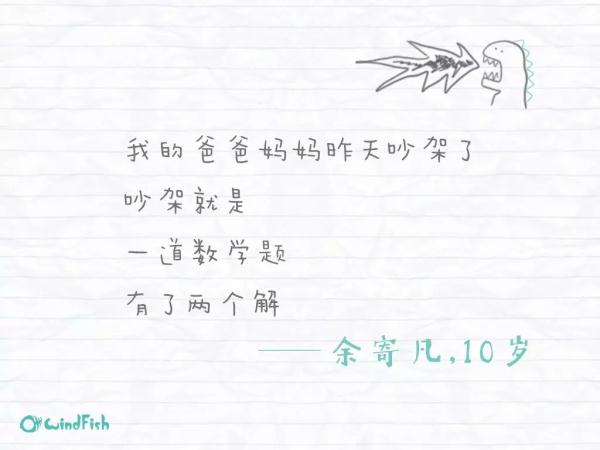 我的爸爸妈妈昨天吵架了
吵架就是
一道数学题
有了两个解
——余寄凡,10岁
WindFish